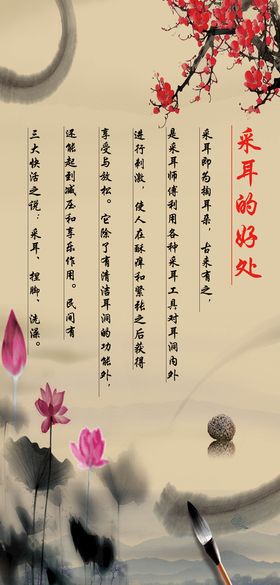 采耳的好处
采耳即为掏耳朵，古来有之，
是采耳师傅利用各种采耳工具对耳洞内外
进行刺激，使人在酥痒和紧张之后获得
享受与放松。它除了有清洁耳洞的功能外，
还能起到减压和享乐作用。民间有
三大快活之说：采耳、捏脚、洗澡。